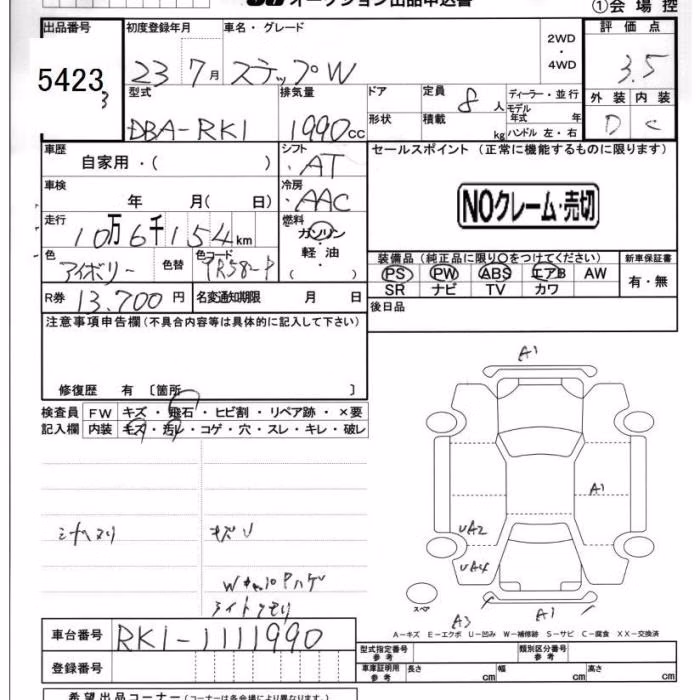 オークション出品申込書
①会場控
出品番号 初度登録年月 車名・グレード 2WD・4WD 評価点
5423 3 23 7月 ステップW 3.5
型式 排気量 ドア 定員 8人 ディーラー・並行 外装 内装
モデル年式 年
DBA-RK1 1990cc 形状 積載 kg ハンドル 左・右 D C
車歴 自家用・( ) シフト ・AT セールスポイント (正常に機能するものに限ります)
車検 年 月( 日) 冷房 ・AAC NOクレーム・売切
走行 10万6千154km 燃料 ガソリン・軽油・( )
色 アイボリー 色替 色コード
装備品 (純正品に限り○をつけてください) 新車保証書
PS PW ABS エアB AW 有・無
SR ナビ TV カワ
R券 13,700円 名変通知期限 月 日 後日品
注意事項申告欄(不具合内容等は具体的に記入して下さい)
修復歴 有 〔箇所 〕
検査員 FW キズ・飛石・ヒビ割・リペア跡・×要
記入欄 内装 キズ・汚レ・コゲ・穴・スレ・キレ・破レ
A1
A1
UA2
UA4
キズU
ライトクモリ
スペア
A3 A1
A-キズ E-エクボ U-凹み W-補修跡 S-サビ C-腐食 XX-交換済
車台番号 RK1-1111990
型式指定番号 参考 類別区分番号 参考
登録番号 車庫証明用 参考 長さ cm 幅 cm 高さ cm
希望出品コーナー(コーナーは各会場により異なります)